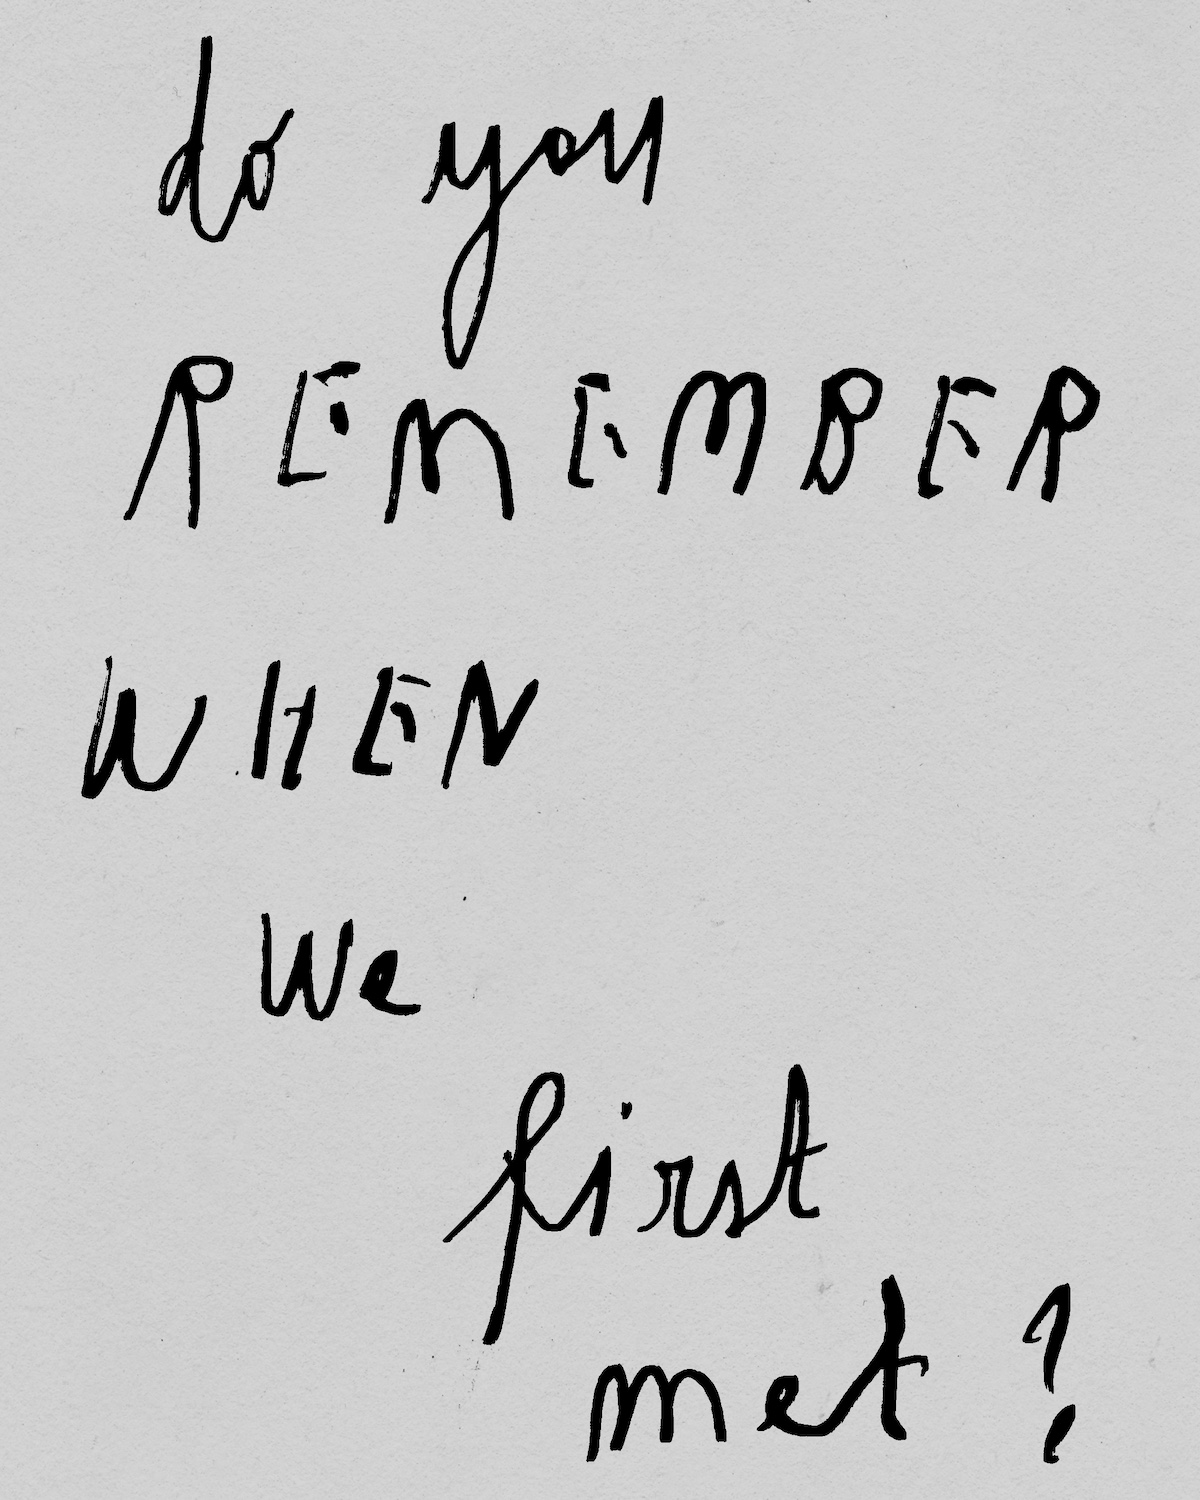 do you
REMEMBER
WHEN
We
first
met?